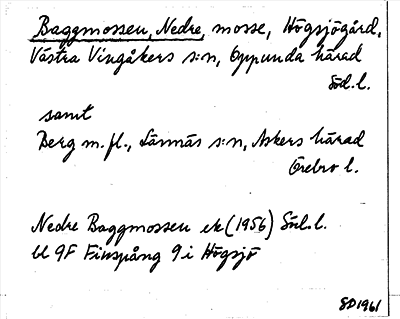 Baggmossen, Nedre, mosse, Högsjögård,
Västra Vingåkers s:n, Oppunda härad
Söd.l.
samt
Berg m.fl., Lännäs s:n, Askers härad
Örebro l.
Nedre Baggmossen ek (1956) Söd.l.
bl 9F Finspång 9 i Högsjö
SD1961